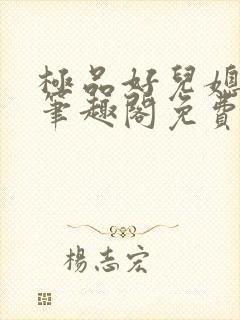 極品好兒媳
筆趣閣免費
楊志宏